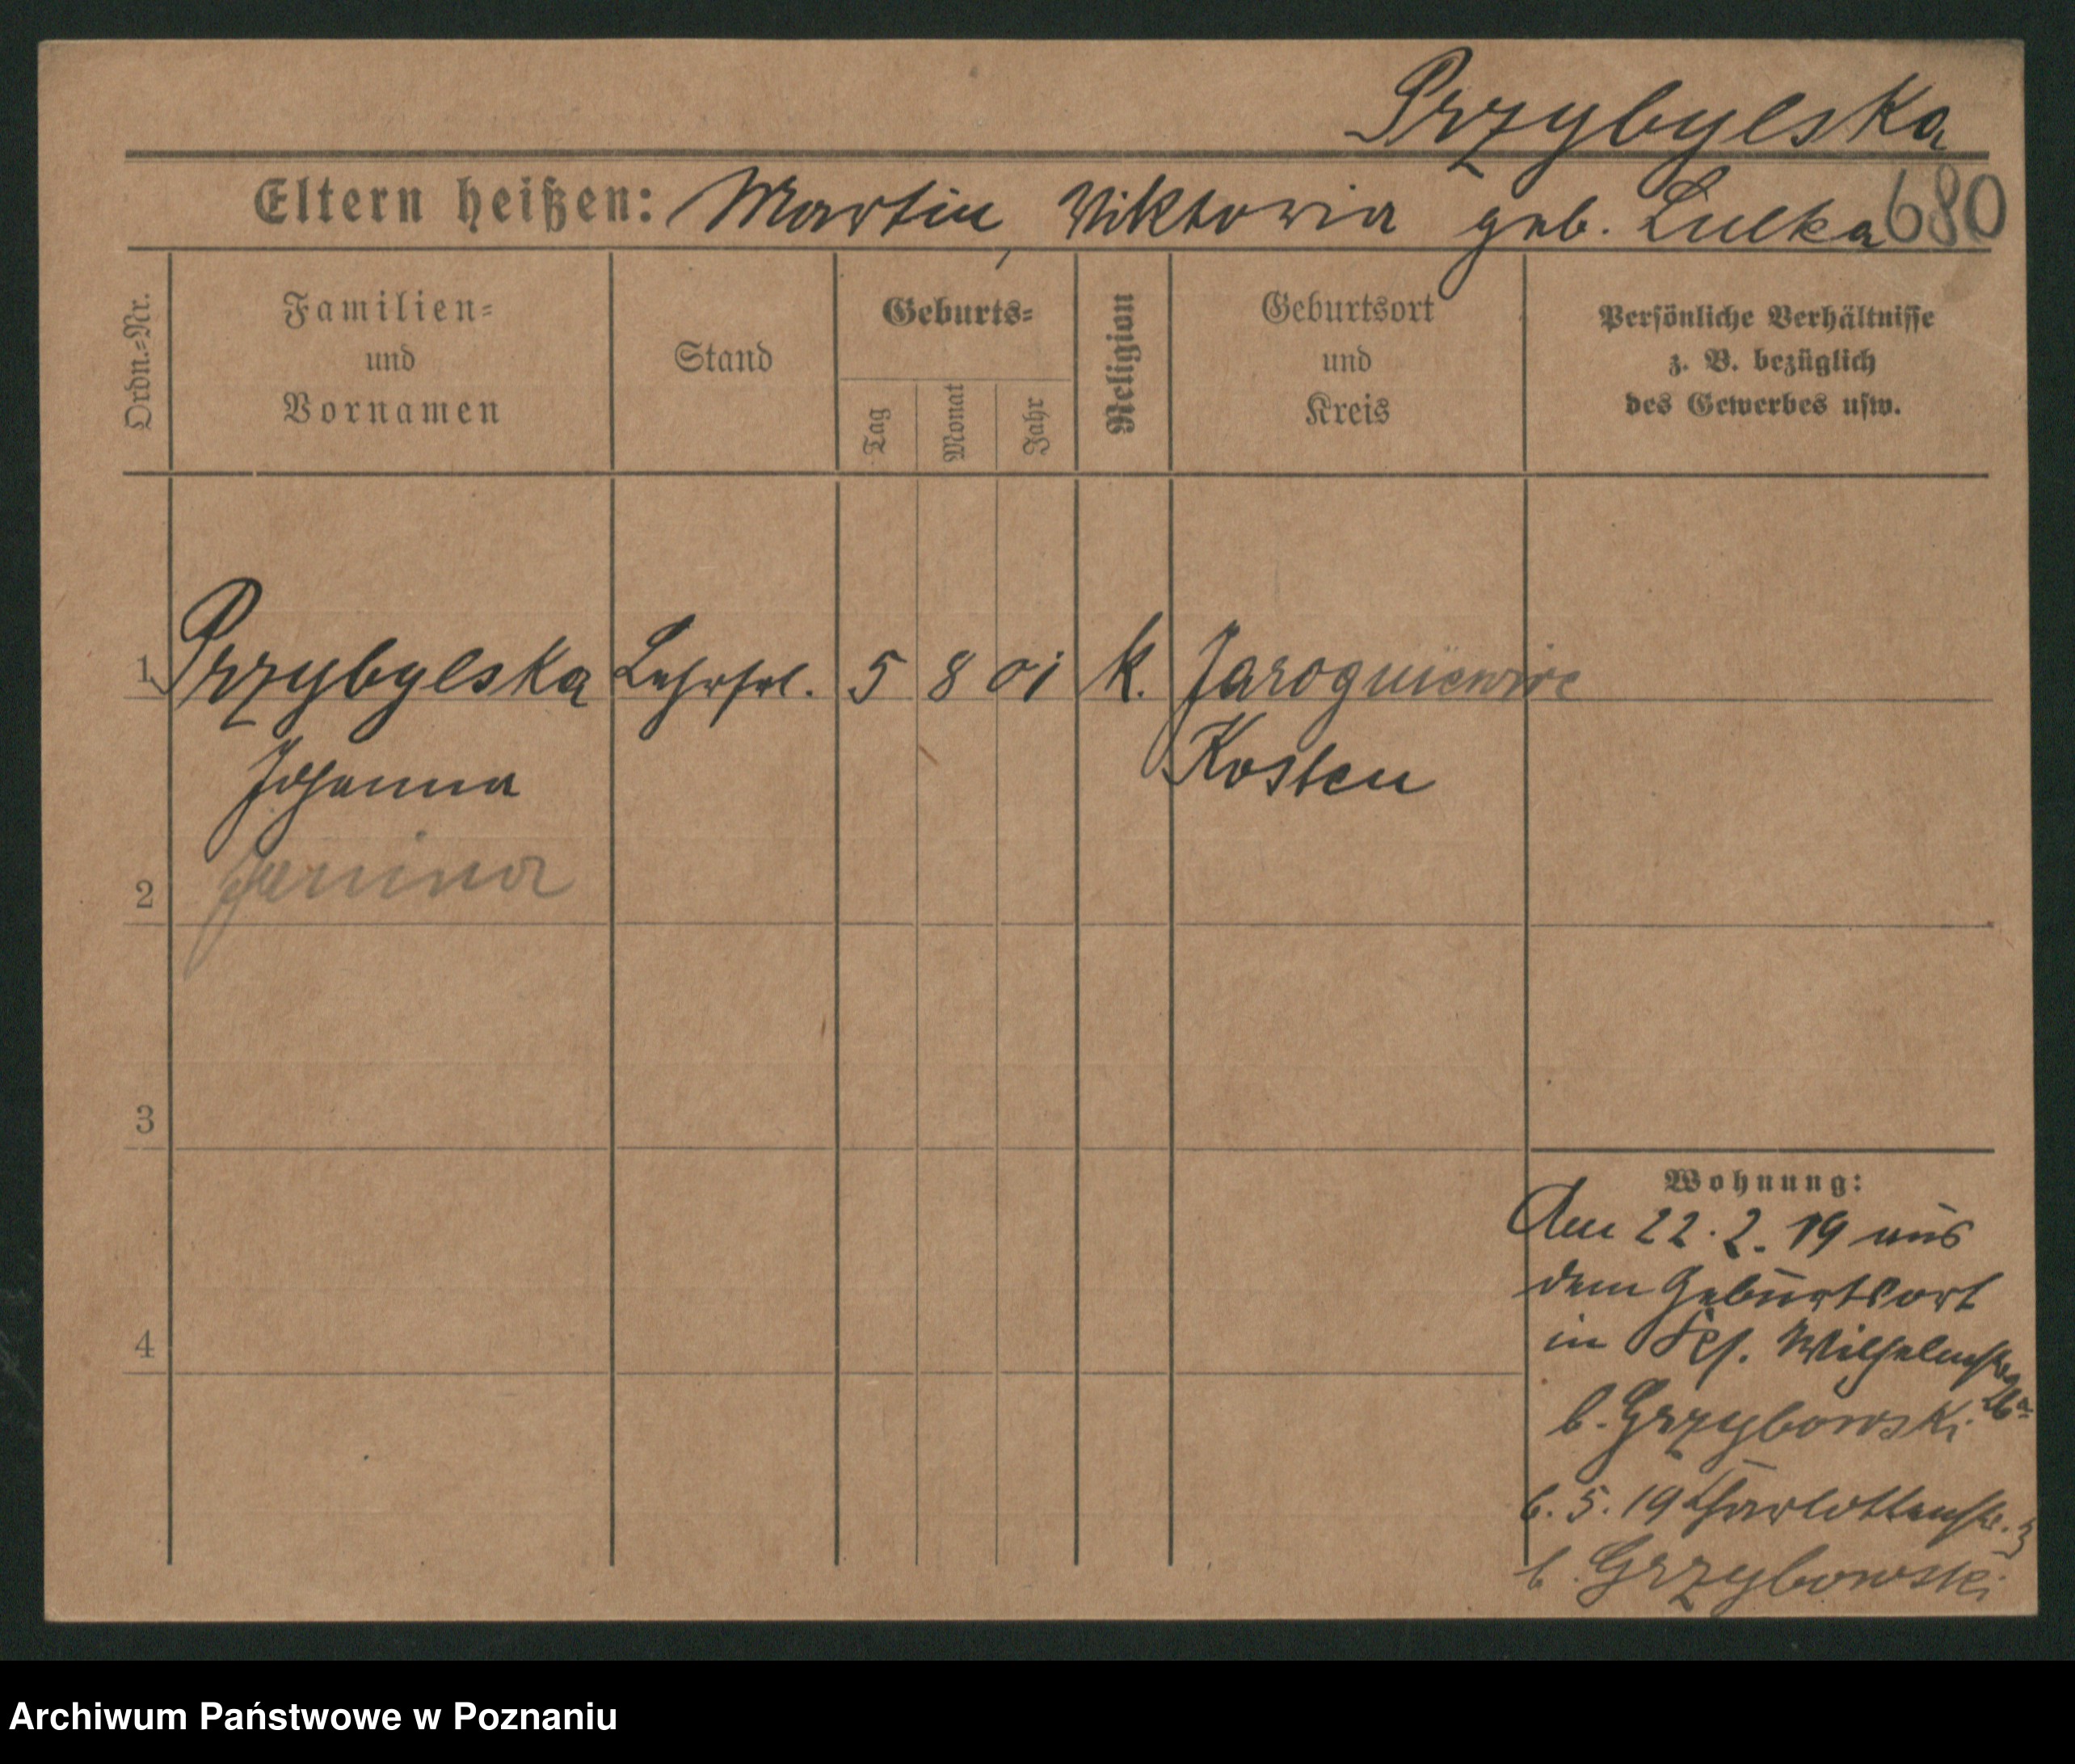 Przybylska
Eltern heißen: Martin, Viktoria geb. Lulka 680
Ordn.-Nr.
Familien-
und
Vornamen
Stand
Geburts-
Tag
Monat
Jahr
Religion
Geburtsort
und
Kreis
Persönliche Verhältnisse
z. B. bezüglich
des Gewerbes usw.
1 Przybylska Lehrfrl. 5 8 01 k. Jarogniewice
Johanna Kosten
Janina
2
3
4
Wohnung:
Am 22.2.19 aus
dem Geburtsort
in Wilhelmstr.
26a
b. Grzybowski
6.5.19 Charlottenstr. 3
b. Grzybowski
Archiwum Państwowe w Poznaniu